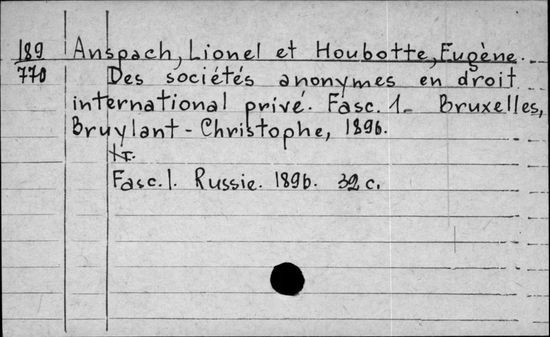 189 Anspach, Lionel et Houbotte, Eugène.
770 Des sociétés anonymes en droit
international privé. Fasc. 1– Bruxelles,
Bruylant-Christophe, 1896.
Fasc. 1. Russie. 1896. 32 c.